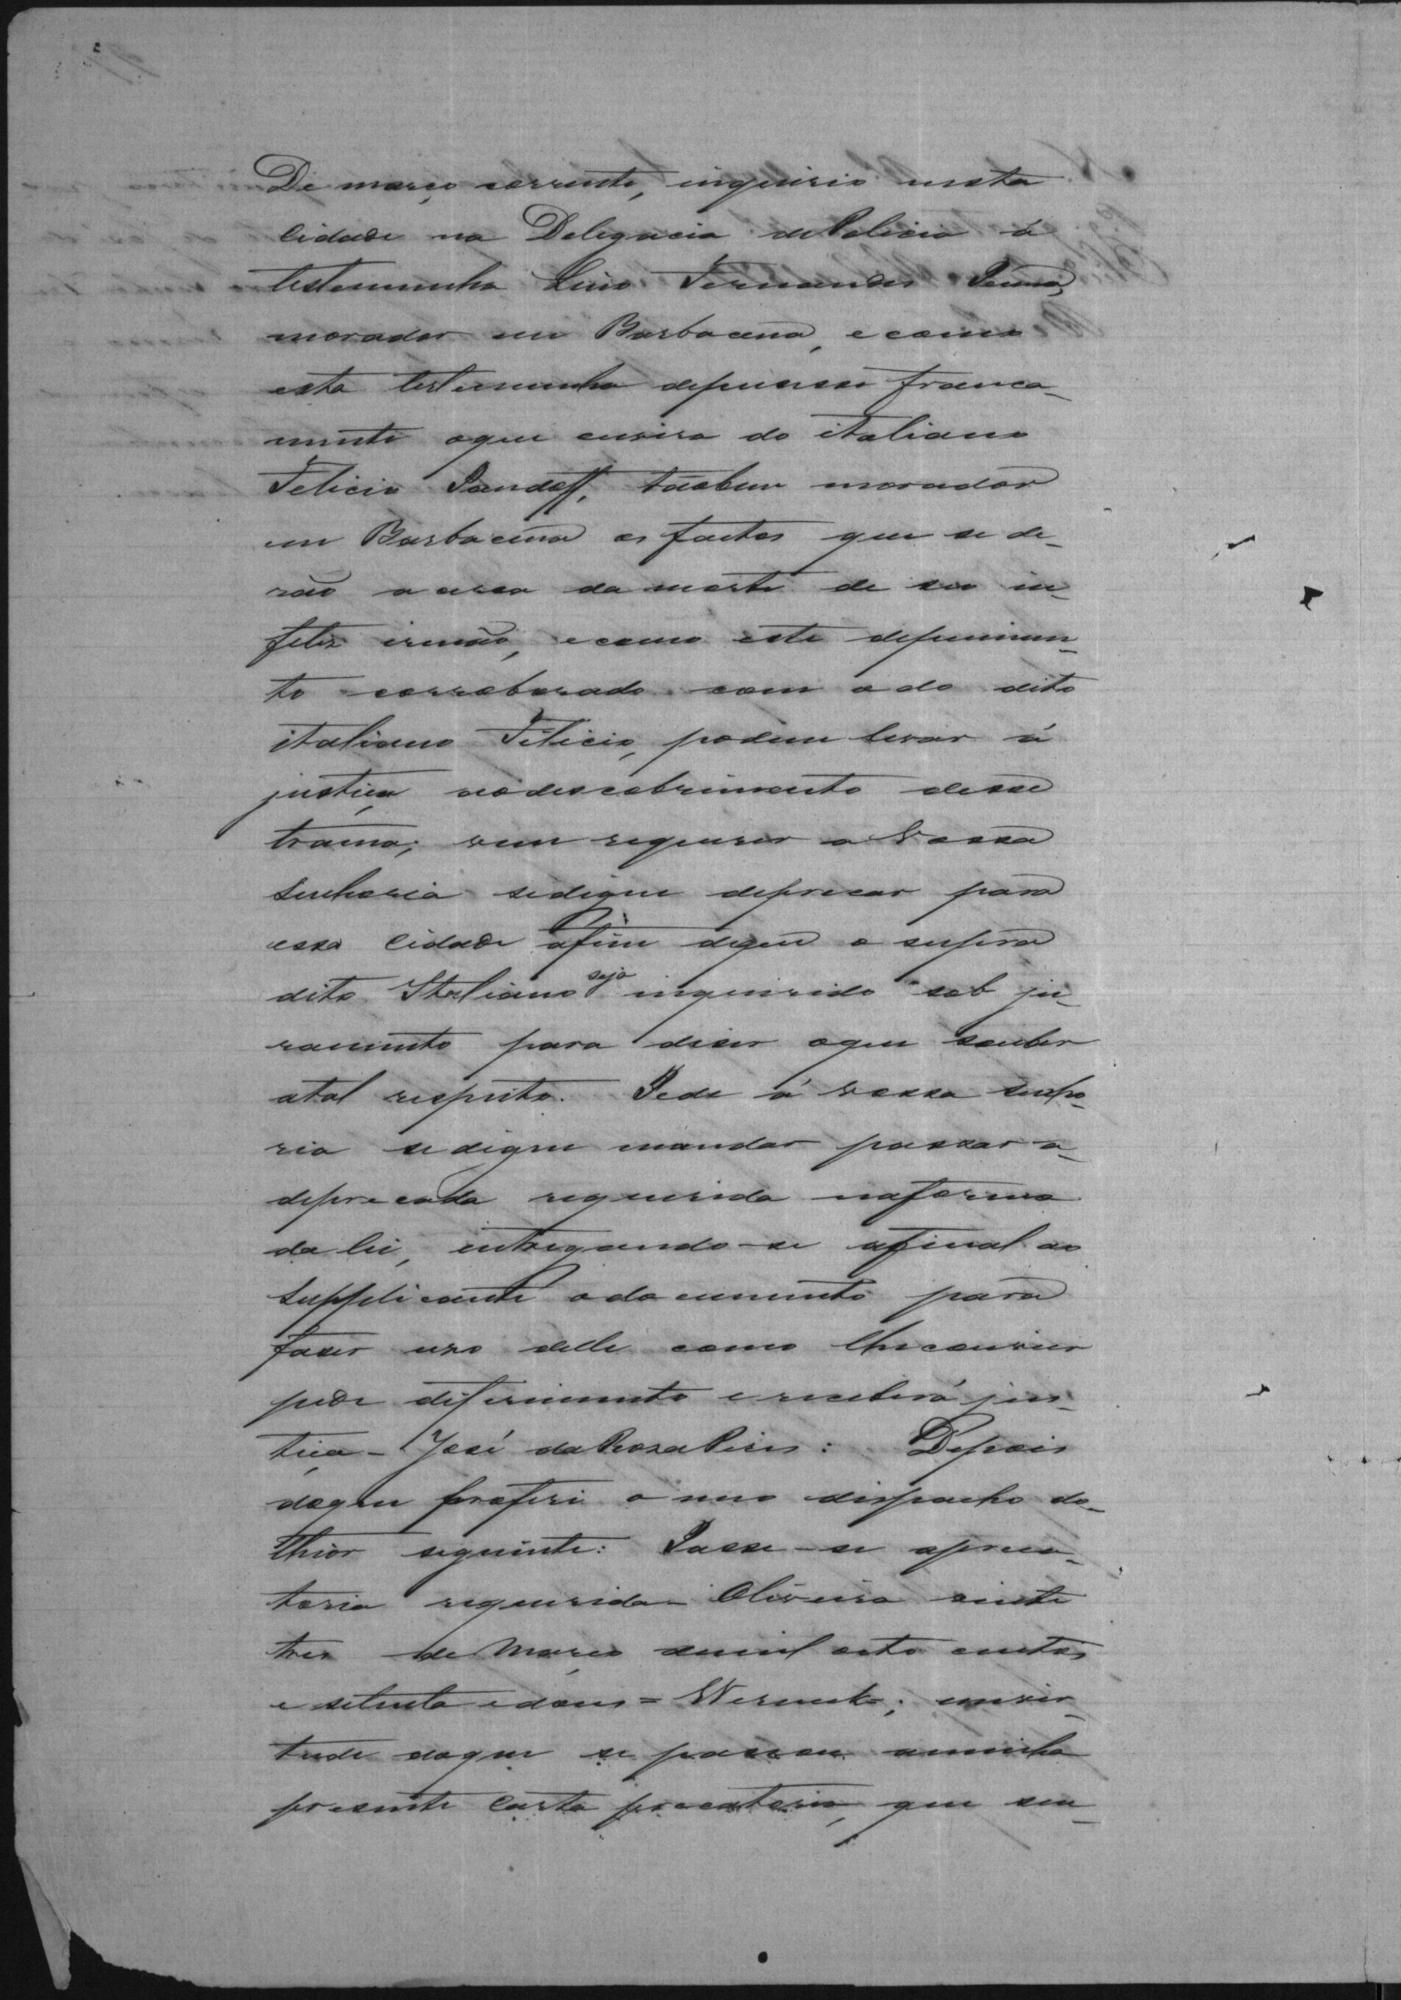 De março corrente, inquirio nesta
cidade na Delegacia de Policia á
testemunha Luis Fernandes Penna,
morador em Barbacena, e como
esta testemunha depusesse franca-
mente oque ouvira do italiano
Felicio, tãobem morador
em Barbacena os factos que se de-
rão a cerca da morte de seu in-
feliz irmão, e como este depoimen-
to corroborado com o do dito
italiano Felicio, podem levar á
justiça ao descobrimento desse
trama; vem requerer a Vossa
Senhoria sedigne deprecar para
essa Cidade afim deque o supra
dito Italiano seja inquirido sob ju-
ramento para diser oque souber
atal respeito. Pede á Vossa Senho-
ria se digne mandar passar a-
deprecada requerida naforma
da lei, entregando-se afinal ao
Supplicante o documento para
faser uso delle como lhe convier
pede deferimento e receberá jus-
tiça - José da Rosa Pires: Depois
doque proferi o meu despacho do-
thior seguinte: Passe-se apreca-
toria requerida - Oliveira vinte
tres de Março demil oito centos
e setenta e dous = Werneck; emvir-
tude doque se passou aminha
presente Carta precatoria, que sen-